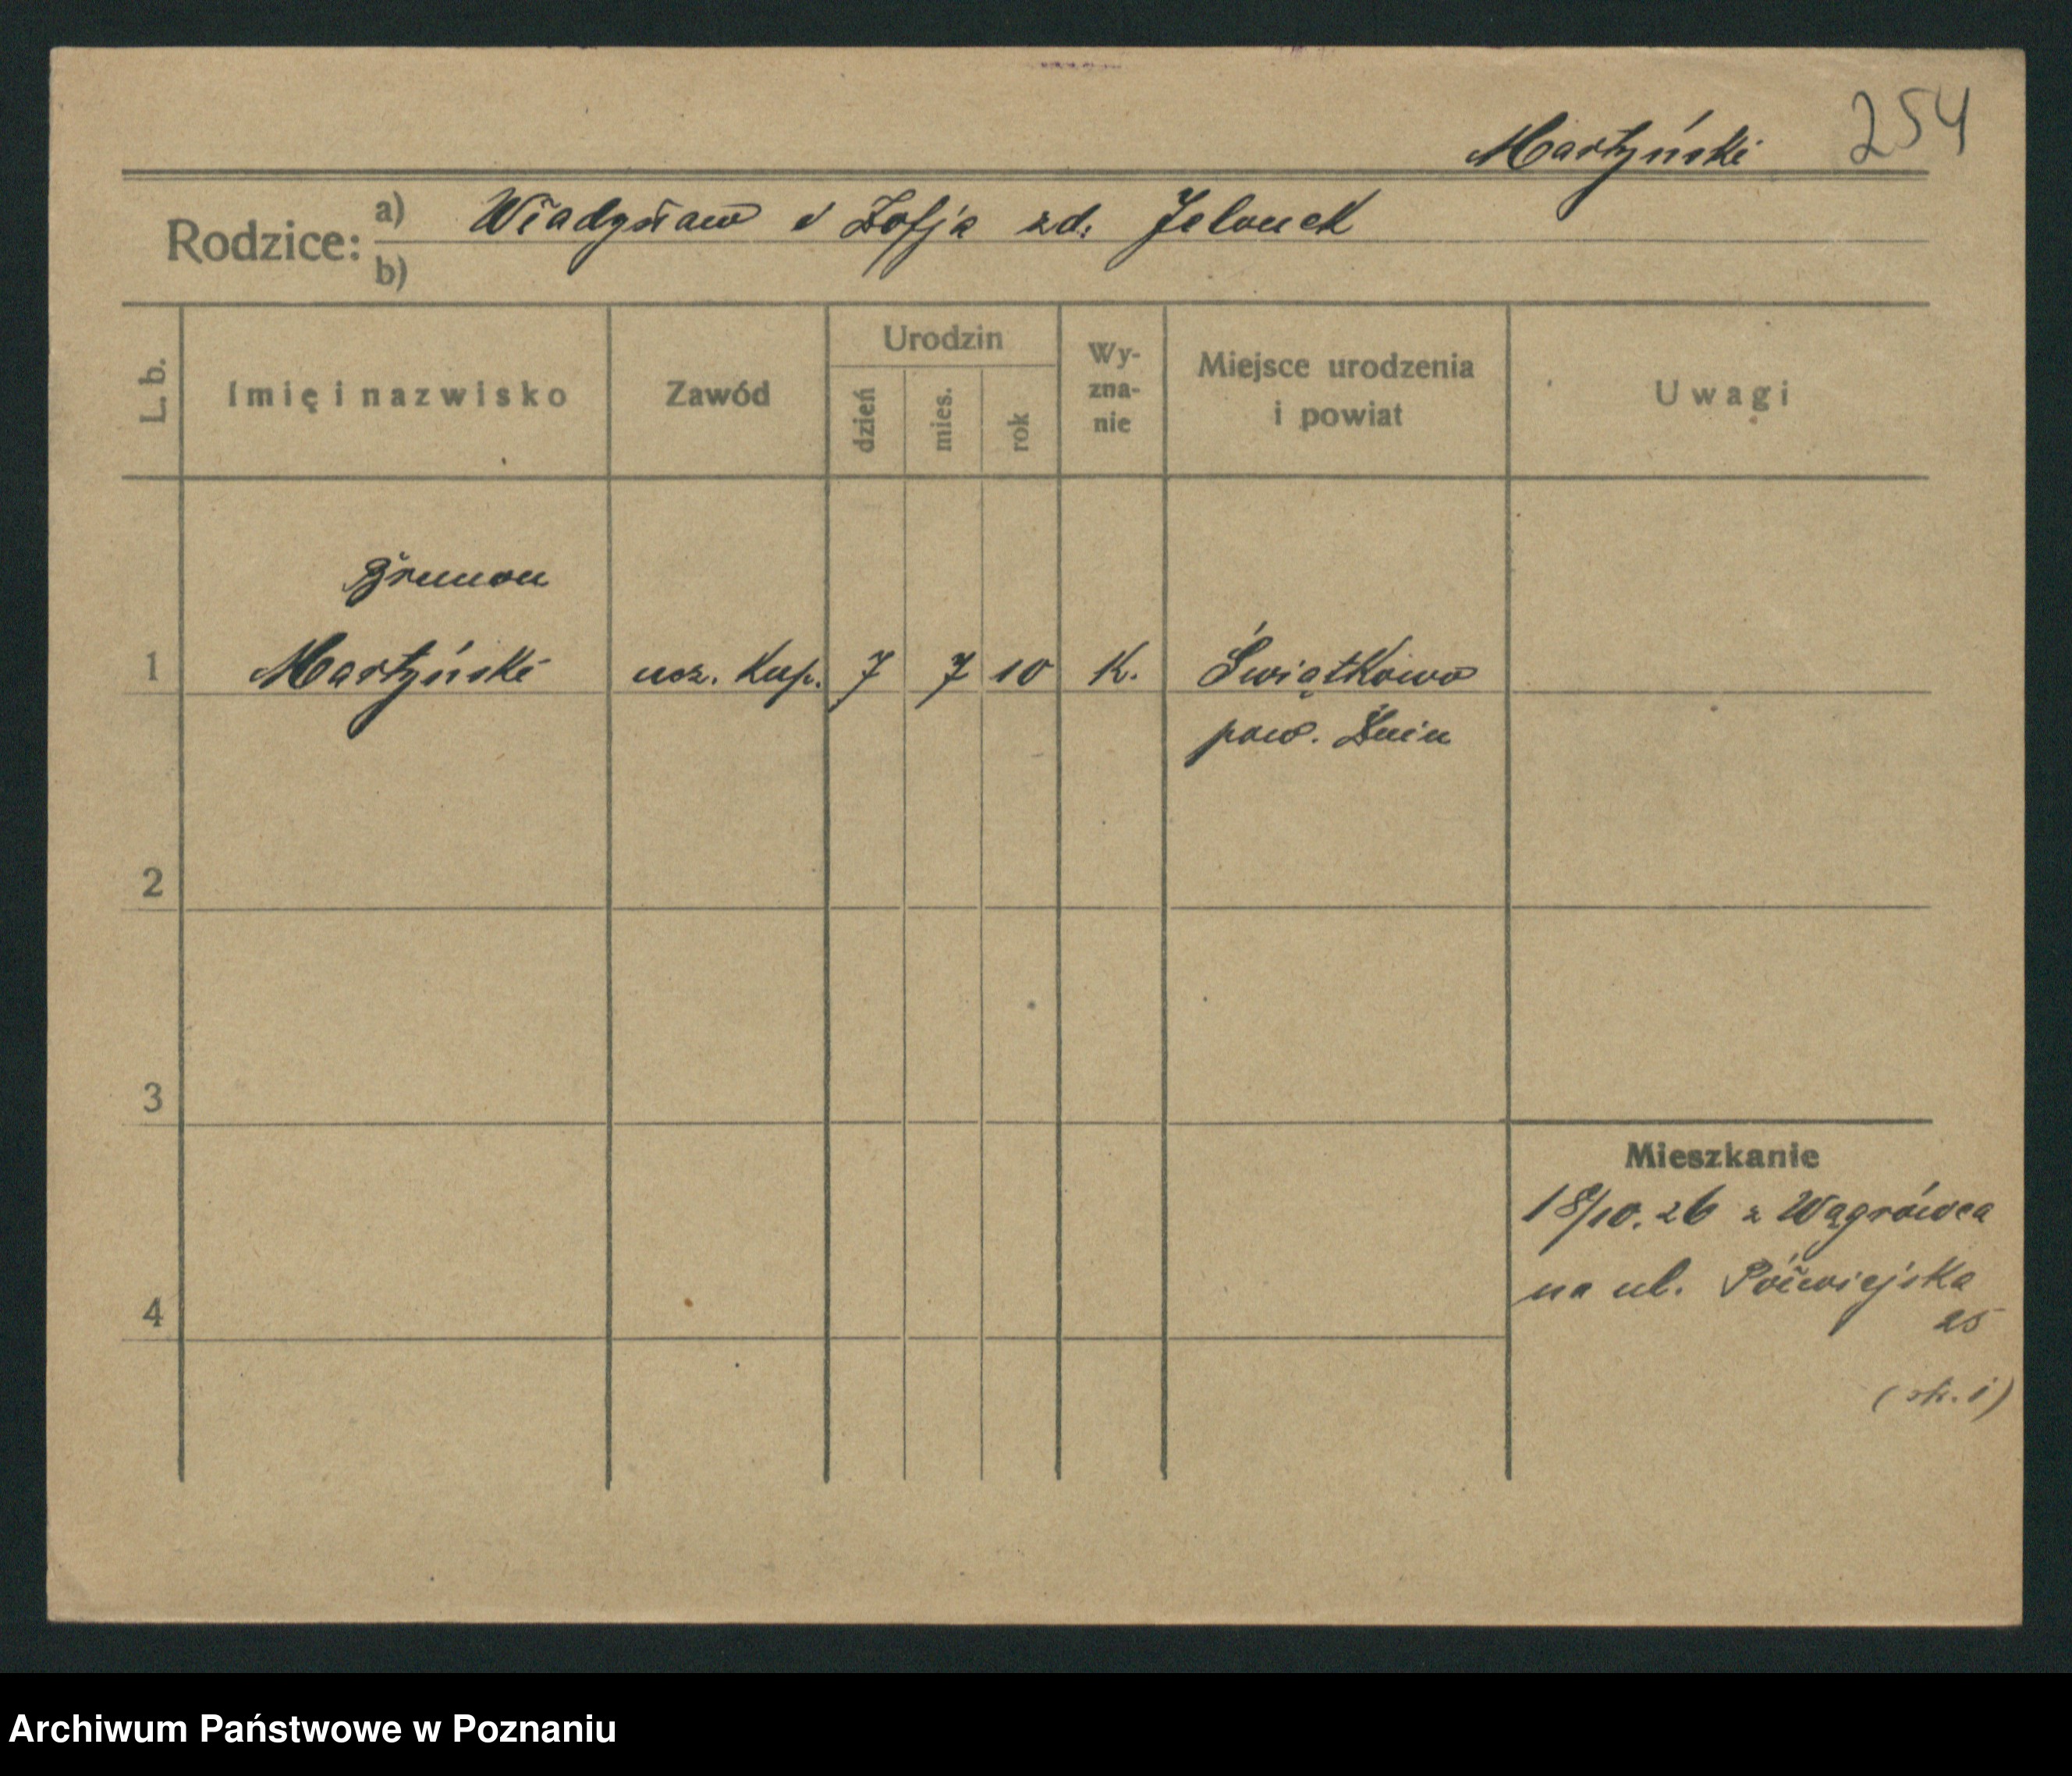 254
Martyński
Rodzice: a) Władysław i Zofja zd. Jelonek
b)
L. b.
Imię i nazwisko
Zawód
Urodzin
dzień
mies.
rok
Wy-
zna-
nie
Miejsce urodzenia
i powiat
Uwagi
Brunon
1 Martyński ucz. kup. 7 7 10 K. Świątkowo
pow. Żnin
2
3
Mieszkanie
18/10. 26 z Wągrówca
na ul. Półwiejska
25
4
Archiwum Państwowe w Poznaniu